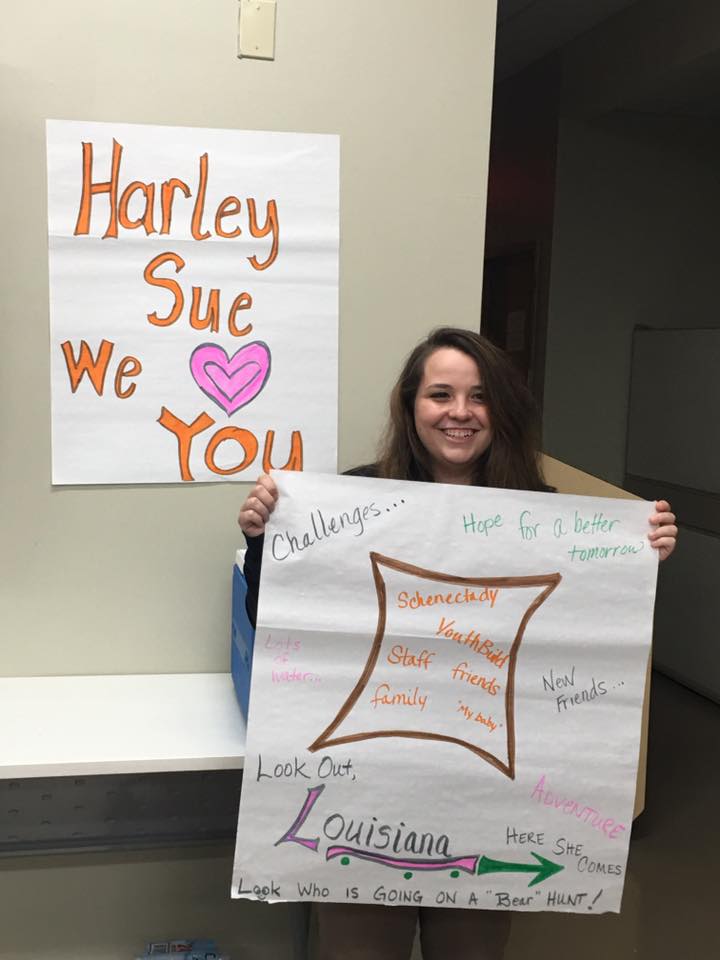 Harley
Sue
We
You
Challenges...
Hope for a better
tomorrow
Schenectady
YouthBuild
Staff friends
family "My baby"
Lots
of
water...
New
Friends...
Look Out,
Louisiana
ADVENTURE
HERE SHE
COMES
Look WHO IS GOING ON A "Bear" HUNT!